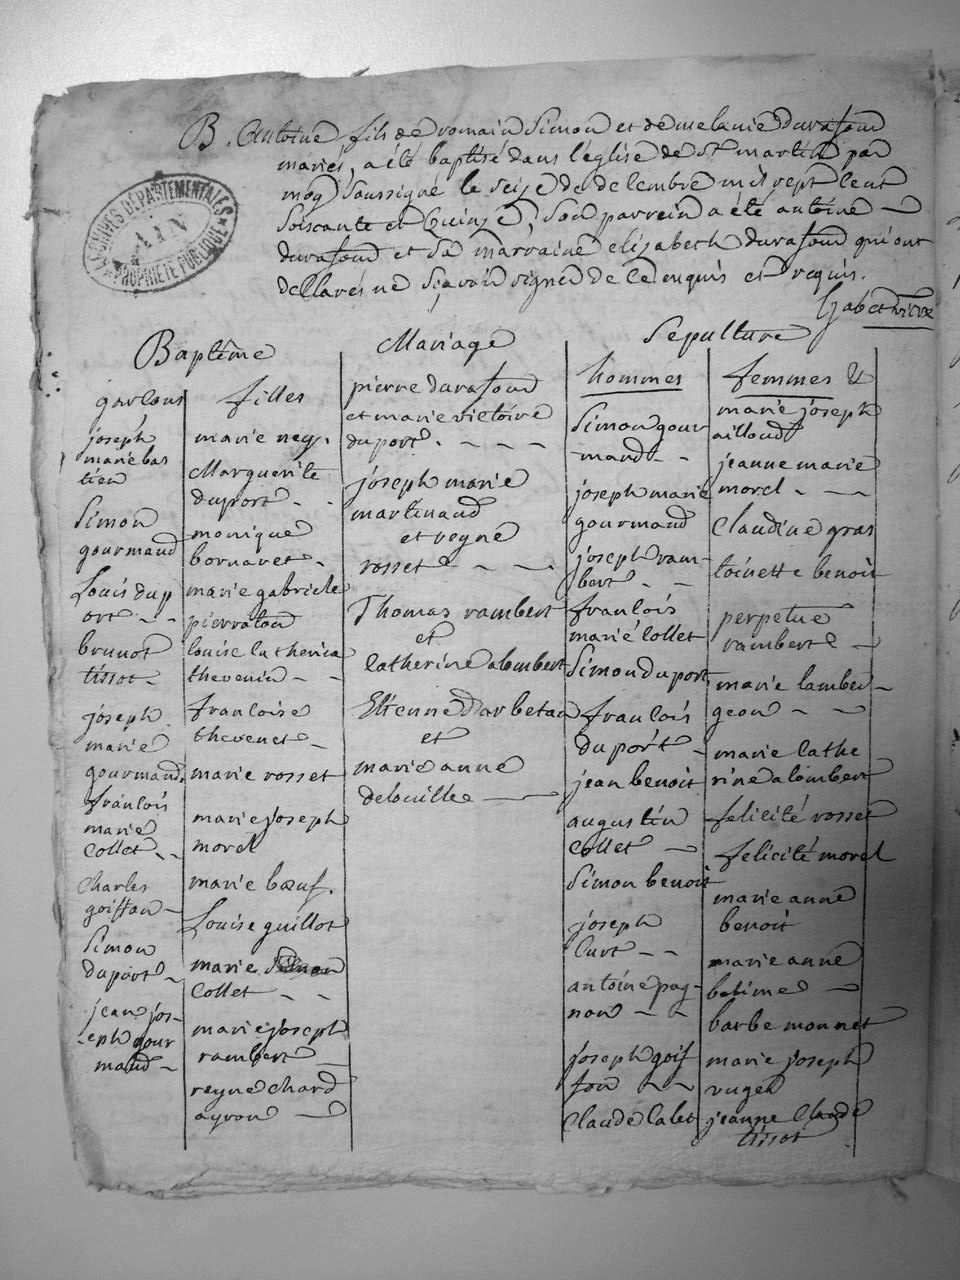 B. Antoine fils de romain Simon et de melanie durafour
mariés, a été baptisé dans l'église de St martin par
moy soussigné le seize de decembre mil sept cent
soiscante et quinze, son parrein a été antoine
durafour et sa marraine elizabeth durafour qui ont
declarés ne sçavoir signer de ce enquis et requis.
vicre
ARCHIVES DÉPARTEMENTALES
AIN
PROPRIÉTÉ PUBLIQUE
Baptême
garcons
joseph
marie bas
tien
Simon
gourmand
Louis dup
ort
brunot
tissot
joseph
marie
gourmand
francois
marie
Collet
Charles
goiffon
Simon
duport
jean jos-
eph gour
mand
filles
marie ney.
Marguerite
duport
monique
bornaret
marie gabriele
pierraton
louise catherica
thevenin
francoise
thevenet
marie rosset
marie joseph
morel
marie bœuf.
Louise guillot
marie
Collet
marie joseph
rambert
reyne chard
ayron
Mariage
pierre durafour
et marie victoire
duport.
joseph marie
martinaud
et reyne
rosset
Thomas rambert
et
catherine alombert
Etienne darbetan
et
marie anne
delouille
Sepulture
hommes
Simon gour
-mand
joseph marie
gourmand
joseph ram-
bert
francois
marié collet
Simon duport
francois
duport
jean benoit
augustin
Collet
Simon benoit
joseph
Curt
antoine pag-
non
joseph goif
fon
Claude Calet
femmes &
marie joseph
ailloud
jeanne marie
morel
Claudine gras
toinette benoit
perpetue
rambert
marie lamber-
geon
marie cathe
rine alombert
felicité rosset
felicité morel
marie anne
benoit
marie anne
belime
barbe monnet
marie joseph
vuget
jeanne claude
tissot